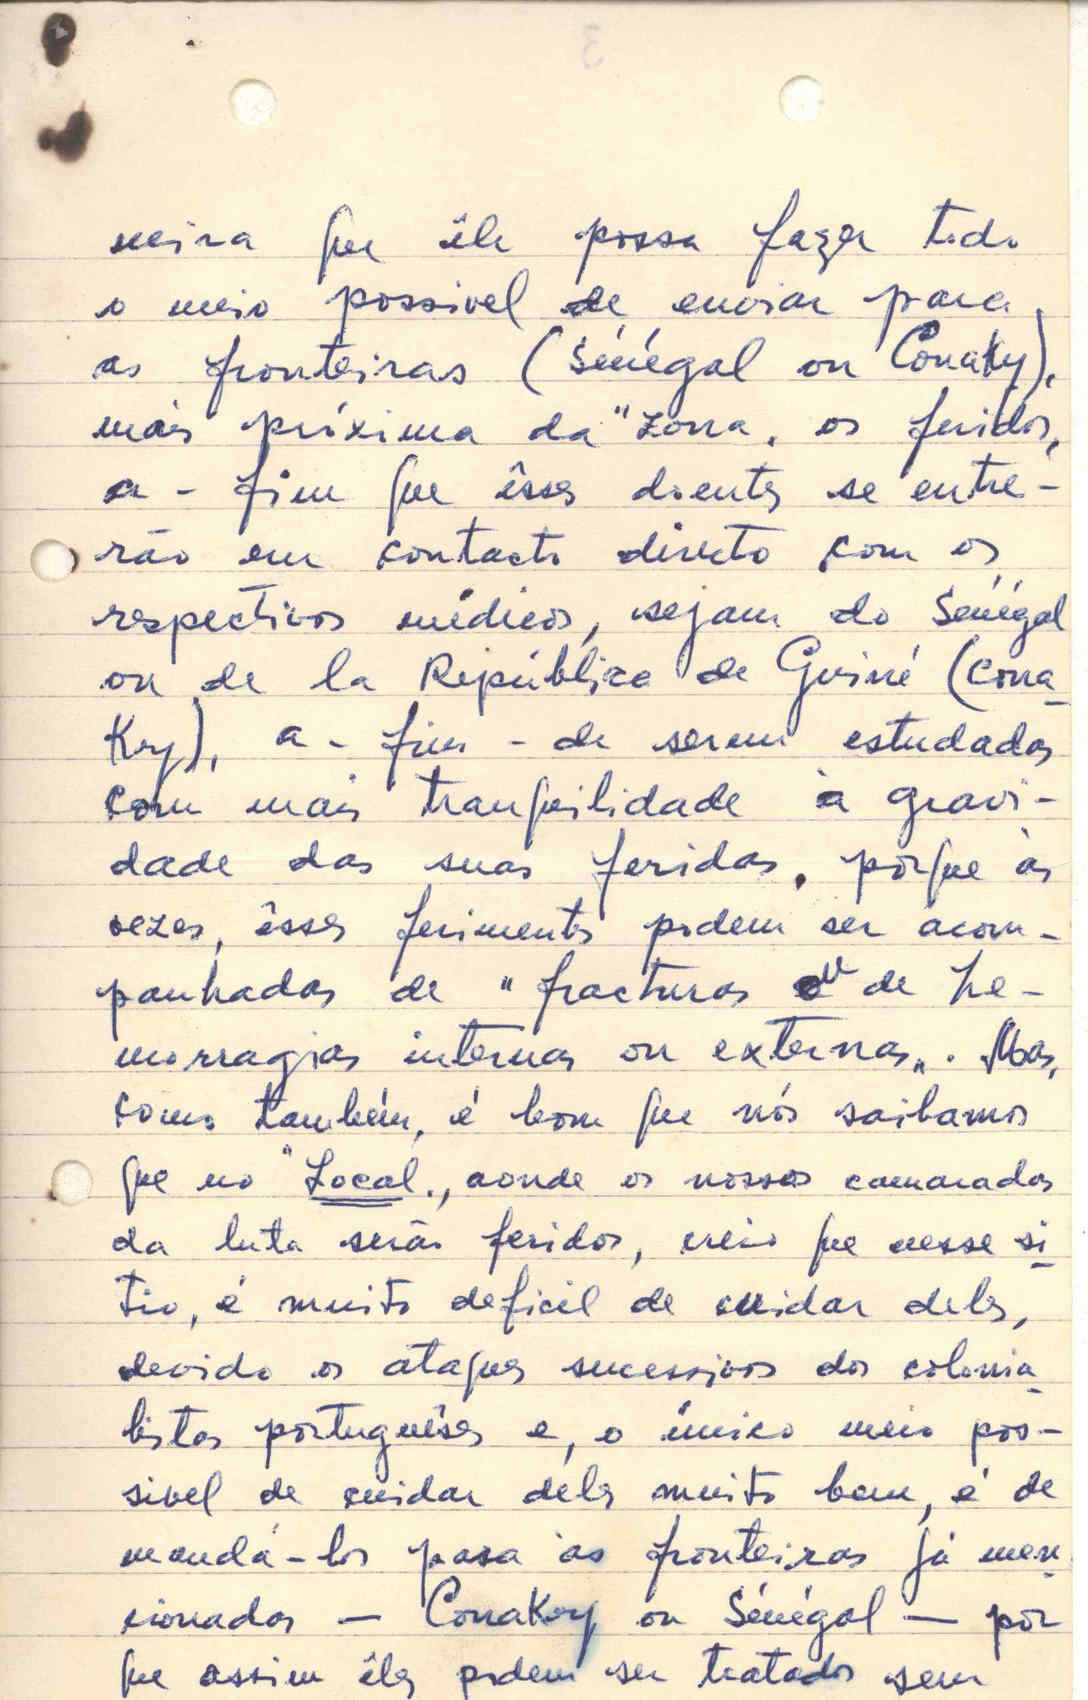 3
neira que êle possa fazer todo
o meio possivel de enviar para
as fronteiras (Sénégal ou Conakry),
mais próxima da "zona", os feridos,
a-fim que êsses doentes se entre-
rão em contacto directo com os
respectivos médicos, sejam do Sénégal
ou de la República de Guiné (Cona-
Kry), a-fim-de serem estudados
com mais tranquilidade à gravi-
dade das suas feridas, porque às
vezes, êsses ferimentos podem ser acom-
panhados de "fracturas ou de he-
morragias internas ou externas". Mas,
como também, é bom que nós saibamos
que no "Local", aonde os nossos camaradas
da luta serão feridos, creio que nesse si-
tio, é muito deficil de cuidar deles,
devido os ataques sucessivos dos colonia-
listas portuguêses e, o único meio pos-
sivel de cuidar deles muito bem, é de
mandá-los para às fronteiras já men-
cionadas — ConaKry ou Sénégal — por
que assim êles podem ser tratados sem